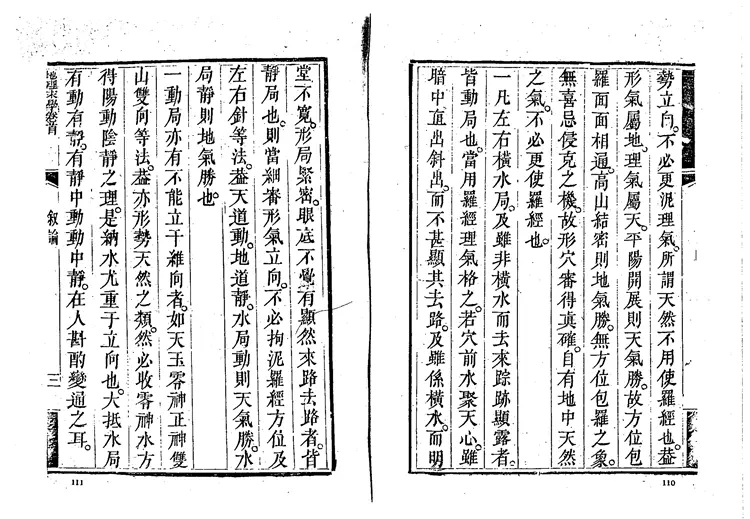 勢立向。不必更泥理氣。所謂天然不用使羅經也。蓋
形氣屬地。理氣屬天。平陽開展則天氣勝。故方位包
羅面面相通。高山結密則地氣勝。無方位包羅之象。
無喜忌侵克之機。故形穴審得真確。自有地中天然
之氣。不必更使羅經也。
一凡左右橫水局。及雖非橫水而去來踪跡顯露者。
皆動局也。當用羅經理氣格之。若穴前水聚天心。雖
暗中直出斜出。而不甚顯其去路。及雖係橫水。而明
110
堂不寬。形局緊密。眼底不覺有顯然來路去路者。皆
靜局也。則當細審形氣立向。不必拘泥羅經方位及
左右針等法。蓋天道動。地道靜。水局動則天氣勝。水
局靜則地氣勝也。
一動局亦有不能立干維向者。如天玉零神正神雙
山雙向等法。蓋亦形勢天然之類。然必收零神水方
得陽動陰靜之理。是納水尤重于立向也。大抵水局
有動有靜。有靜中動動中靜。在人斟酌變通之耳。
敘論
三
111